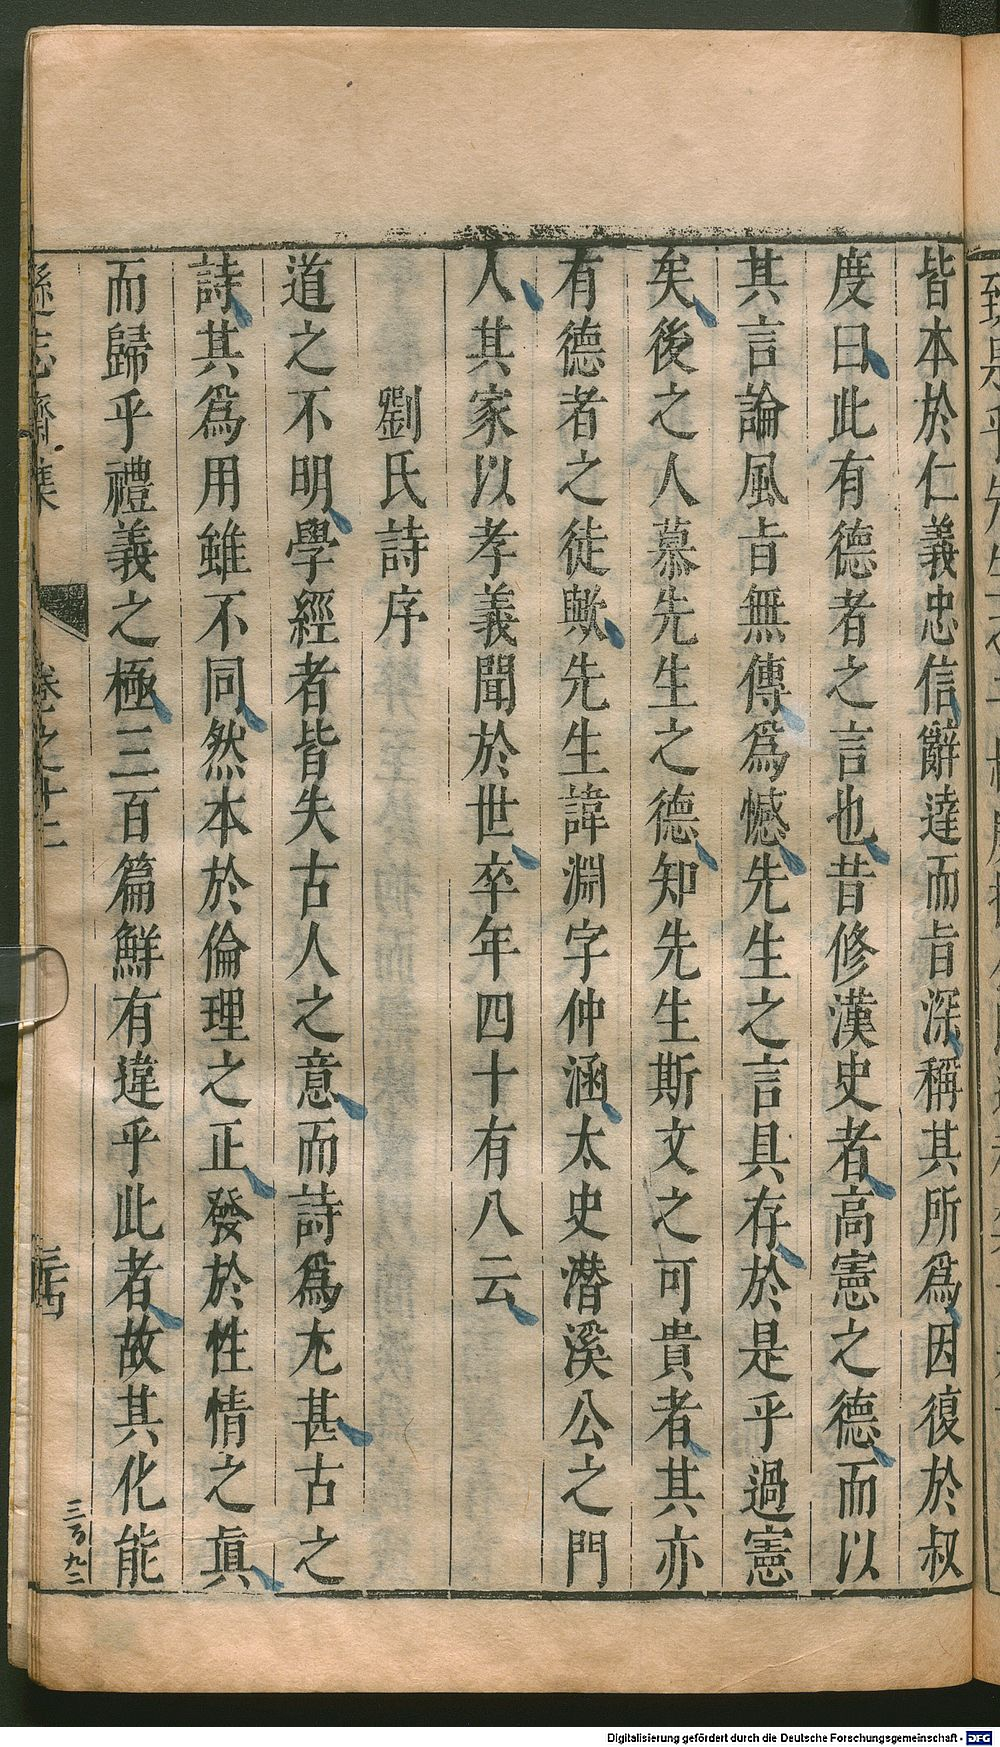 皆本於仁義忠信辭達而旨深稱其所爲因復於叔
度曰此有德者之言也昔修漢史者高憲之德而以
其言論風旨無傳爲憾先生之言具存於是乎過憲
矣後之人慕先生之德知先生斯文之可貴者其亦
有德者之徒歟先生諱淵字仲涵太史潛溪公之門
人其家以孝義聞於世卒年四十有八云
劉氏詩序
道之不明學經者皆失古人之意而詩爲尤甚古之
詩其爲用雖不同然本於倫理之正發於性情之眞
而歸乎禮義之極三百篇鮮有違乎此者故其化能
遜志齋集
卷之十二
三百九二
Digitalisierung gefördert durch die Deutsche Forschungsgemeinschaft - DFG